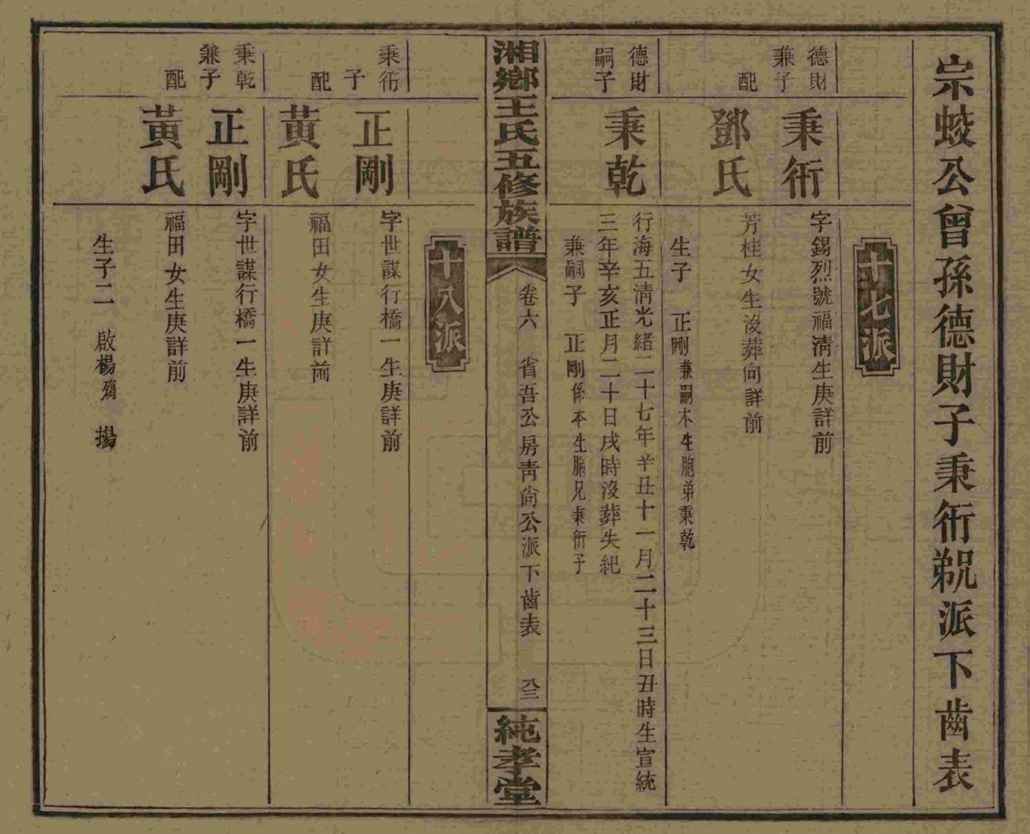 宗蛟公曾孫德財子秉衍覡派下齒表
十七派
德財兼子
秉衍
字錫烈號福淸生庚詳前
配
鄧氏
芳桂女生沒葬向詳前
生子 正剛兼嗣本生胞弟秉乾
德財嗣子
秉乾
行海五淸光緒二十七年辛丑十一月二十三日丑時生宣統
三年辛亥正月二十日戌時沒葬失紀
兼嗣子 正剛係本生胞兄秉衍子
湘鄉王氏五修族譜
卷六 省吾公房靑尙公派下齒表 八三
純孝堂
十八派
秉衍子
正剛
字世謀行橋一生庚詳前
配
黃氏
福田女生庚詳前
秉乾兼子
正剛
字世謀行橋一生庚詳前
配
黃氏
福田女生庚詳前
生子二 啟楊 揚